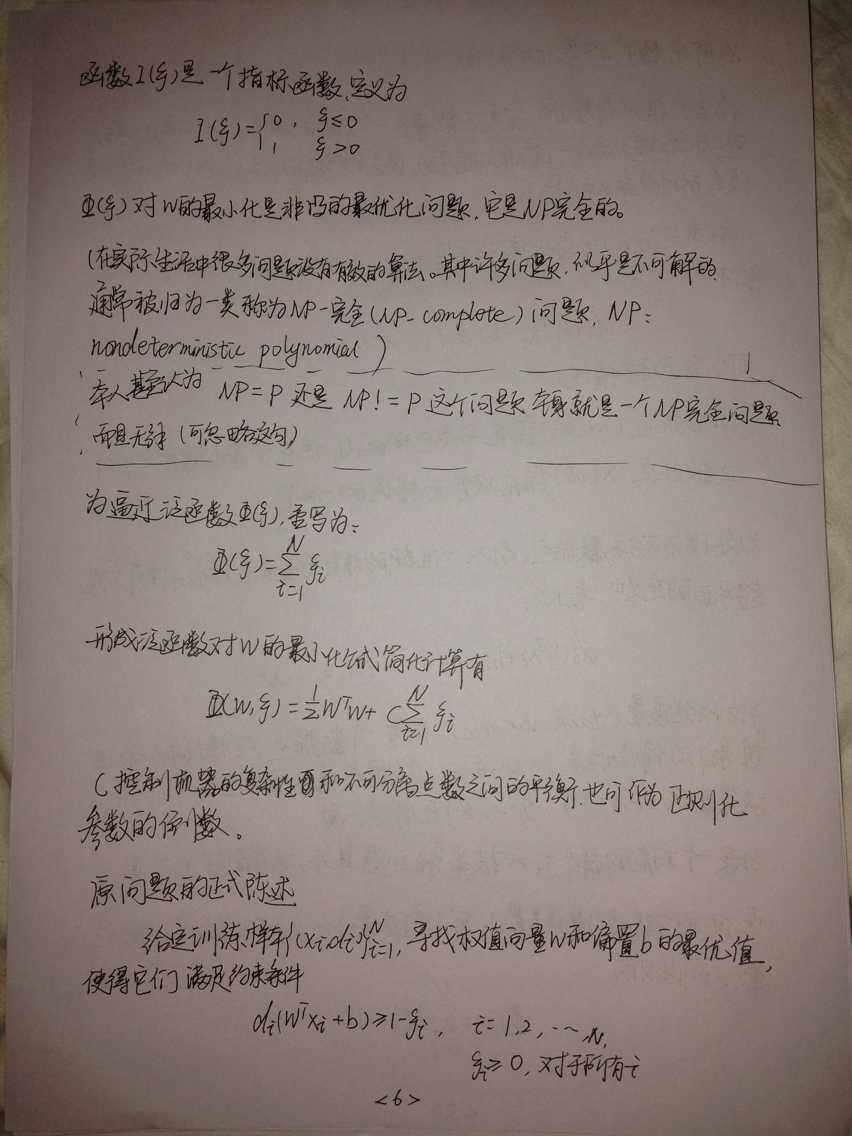 函数I(ξ)是一个指标函数,定义为
I(ξ)={0, ξ≤0
1, ξ>0
Φ(ξ)对W的最小化是非凸的最优化问题,它是NP完全的。
(在实际生活中很多问题没有有效的算法。其中许多问题,似乎是不可解的,
通常被归为一类称为NP-完全(NP-complete)问题, NP:
nondeterministic polynomial)
本人甚至认为 NP=P 还是 NP!=P 这个问题本身就是一个NP完全问题
而且无解(可忽略这句)
为逼近泛函数Φ(ξ),重写为:
Φ(ξ)=∑ᵢ₌₁ᴺ ξᵢ
形成泛函数对W的最小化公式简化计算有
Φ(W,ξ)=½WᵀW+C∑ᵢ₌₁ᴺ ξᵢ
C控制机器的复杂性和不可分离点数之间的平衡,也可作为正则化
参数的倒数。
原问题的正式陈述
给定训练样本{(xᵢ,dᵢ)}ᵢ₌₁ᴺ,寻找权值向量W和偏置b的最优值,
使得它们满足约束条件
dᵢ(Wᵀxᵢ+b)≥1-ξᵢ, i=1,2,…N,
ξᵢ≥0,对于所有i
<6>